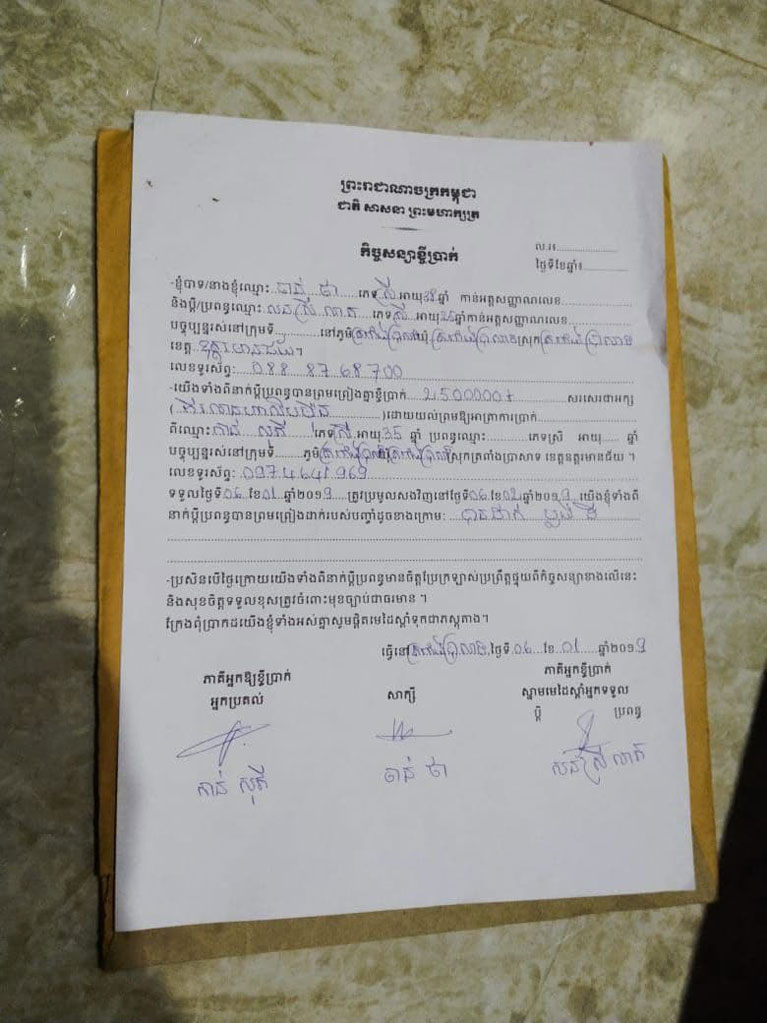 ព្រះរាជាណាចក្រកម្ពុជា
ជាតិ សាសនា ព្រះមហាក្សត្រ
កិច្ចសន្យាខ្ចីប្រាក់
ល.រ៖
ថ្ងៃទីខែឆ្នាំ៖
-ខ្ញុំបាទ/នាងខ្ញុំឈ្មោះ ចាន់ ថា ភេទ ស្រី អាយុ ឆ្នាំ កាន់អត្តសញ្ញាណលេខ
និងប្តី/ប្រពន្ធឈ្មោះ ភេទ អាយុ ឆ្នាំកាន់អត្តសញ្ញាណលេខ
បច្ចុប្បន្នរស់នៅក្រុមទី នៅភូមិ ត្រពាំងប្រាសាទ ឃុំ ត្រពាំងប្រាសាទ ស្រុក ត្រពាំងប្រាសាទ
ខេត្ត ឧត្តរមានជ័យ ។
លេខទូរស័ព្ទ: 088 87 68 700
-យើងទាំងពីនាក់ប្តីប្រពន្ធបានព្រមព្រៀងគ្នាខ្ចីប្រាក់ 2500000៛ សរសេរជាអក្ស
( )ដោយយល់ព្រមឱ្យអាត្រាការប្រាក់
ពីឈ្មោះ កាន់ សុភី ភេទ ស្រី អាយុ 35 ឆ្នាំ ប្រពន្ធឈ្មោះ ភេទស្រី អាយុ ឆ្នាំ
បច្ចុប្បន្នរស់នៅក្រុមទី ភូមិ ត្រពាំងប្រាសាទ ស្រុកត្រពាំងប្រាសាទ ខេត្តឧត្តរមានជ័យ ។
លេខទូរស័ព្ទ: 097 4641 969
ទទួលថ្ងៃទី 06 ខែ 01 ឆ្នាំ២០១9 ត្រូវប្រមូលសងវិញនៅថ្ងៃទី 06 ខែ 02 ឆ្នាំ២០១9 យើងខ្ញុំទាំងពី
នាក់ប្តីប្រពន្ធបានព្រមព្រៀងដាក់របស់បញ្ចាំដូចខាងក្រោម: បានដាក់ ប្លង់ ដី
-ប្រសិនបើថ្ងៃក្រោយយើងទាំងពីនាក់ប្តីប្រពន្ធមានចិត្តប្រែក្រឡាស់ប្រព្រឹត្តផ្ទុយពីកិច្ចសន្យាខាងលើនេះ
និងសុខចិត្តទទួលខុសត្រូវចំពោះមុខច្បាប់ជាធរមាន ។
ក្រែងពុំប្រាកដយើងខ្ញុំទាំងអស់គ្នាសូមផ្តិតមេដៃស្តាំទុកជាភស្តុតាង។
ធ្វើនៅ ត្រពាំងប្រាសាទ,ថ្ងៃទី 06 ខែ 01 ឆ្នាំ២០១9
ភាគីអ្នកឱ្យខ្ចីប្រាក់ ភាគីអ្នកខ្ចីប្រាក់
អ្នកប្រគល់ សាក្សី ស្នាមមេដៃស្តាំអ្នកទទួល
ប្តី ប្រពន្ធ
កាន់ សុភី ចាន់ ថា